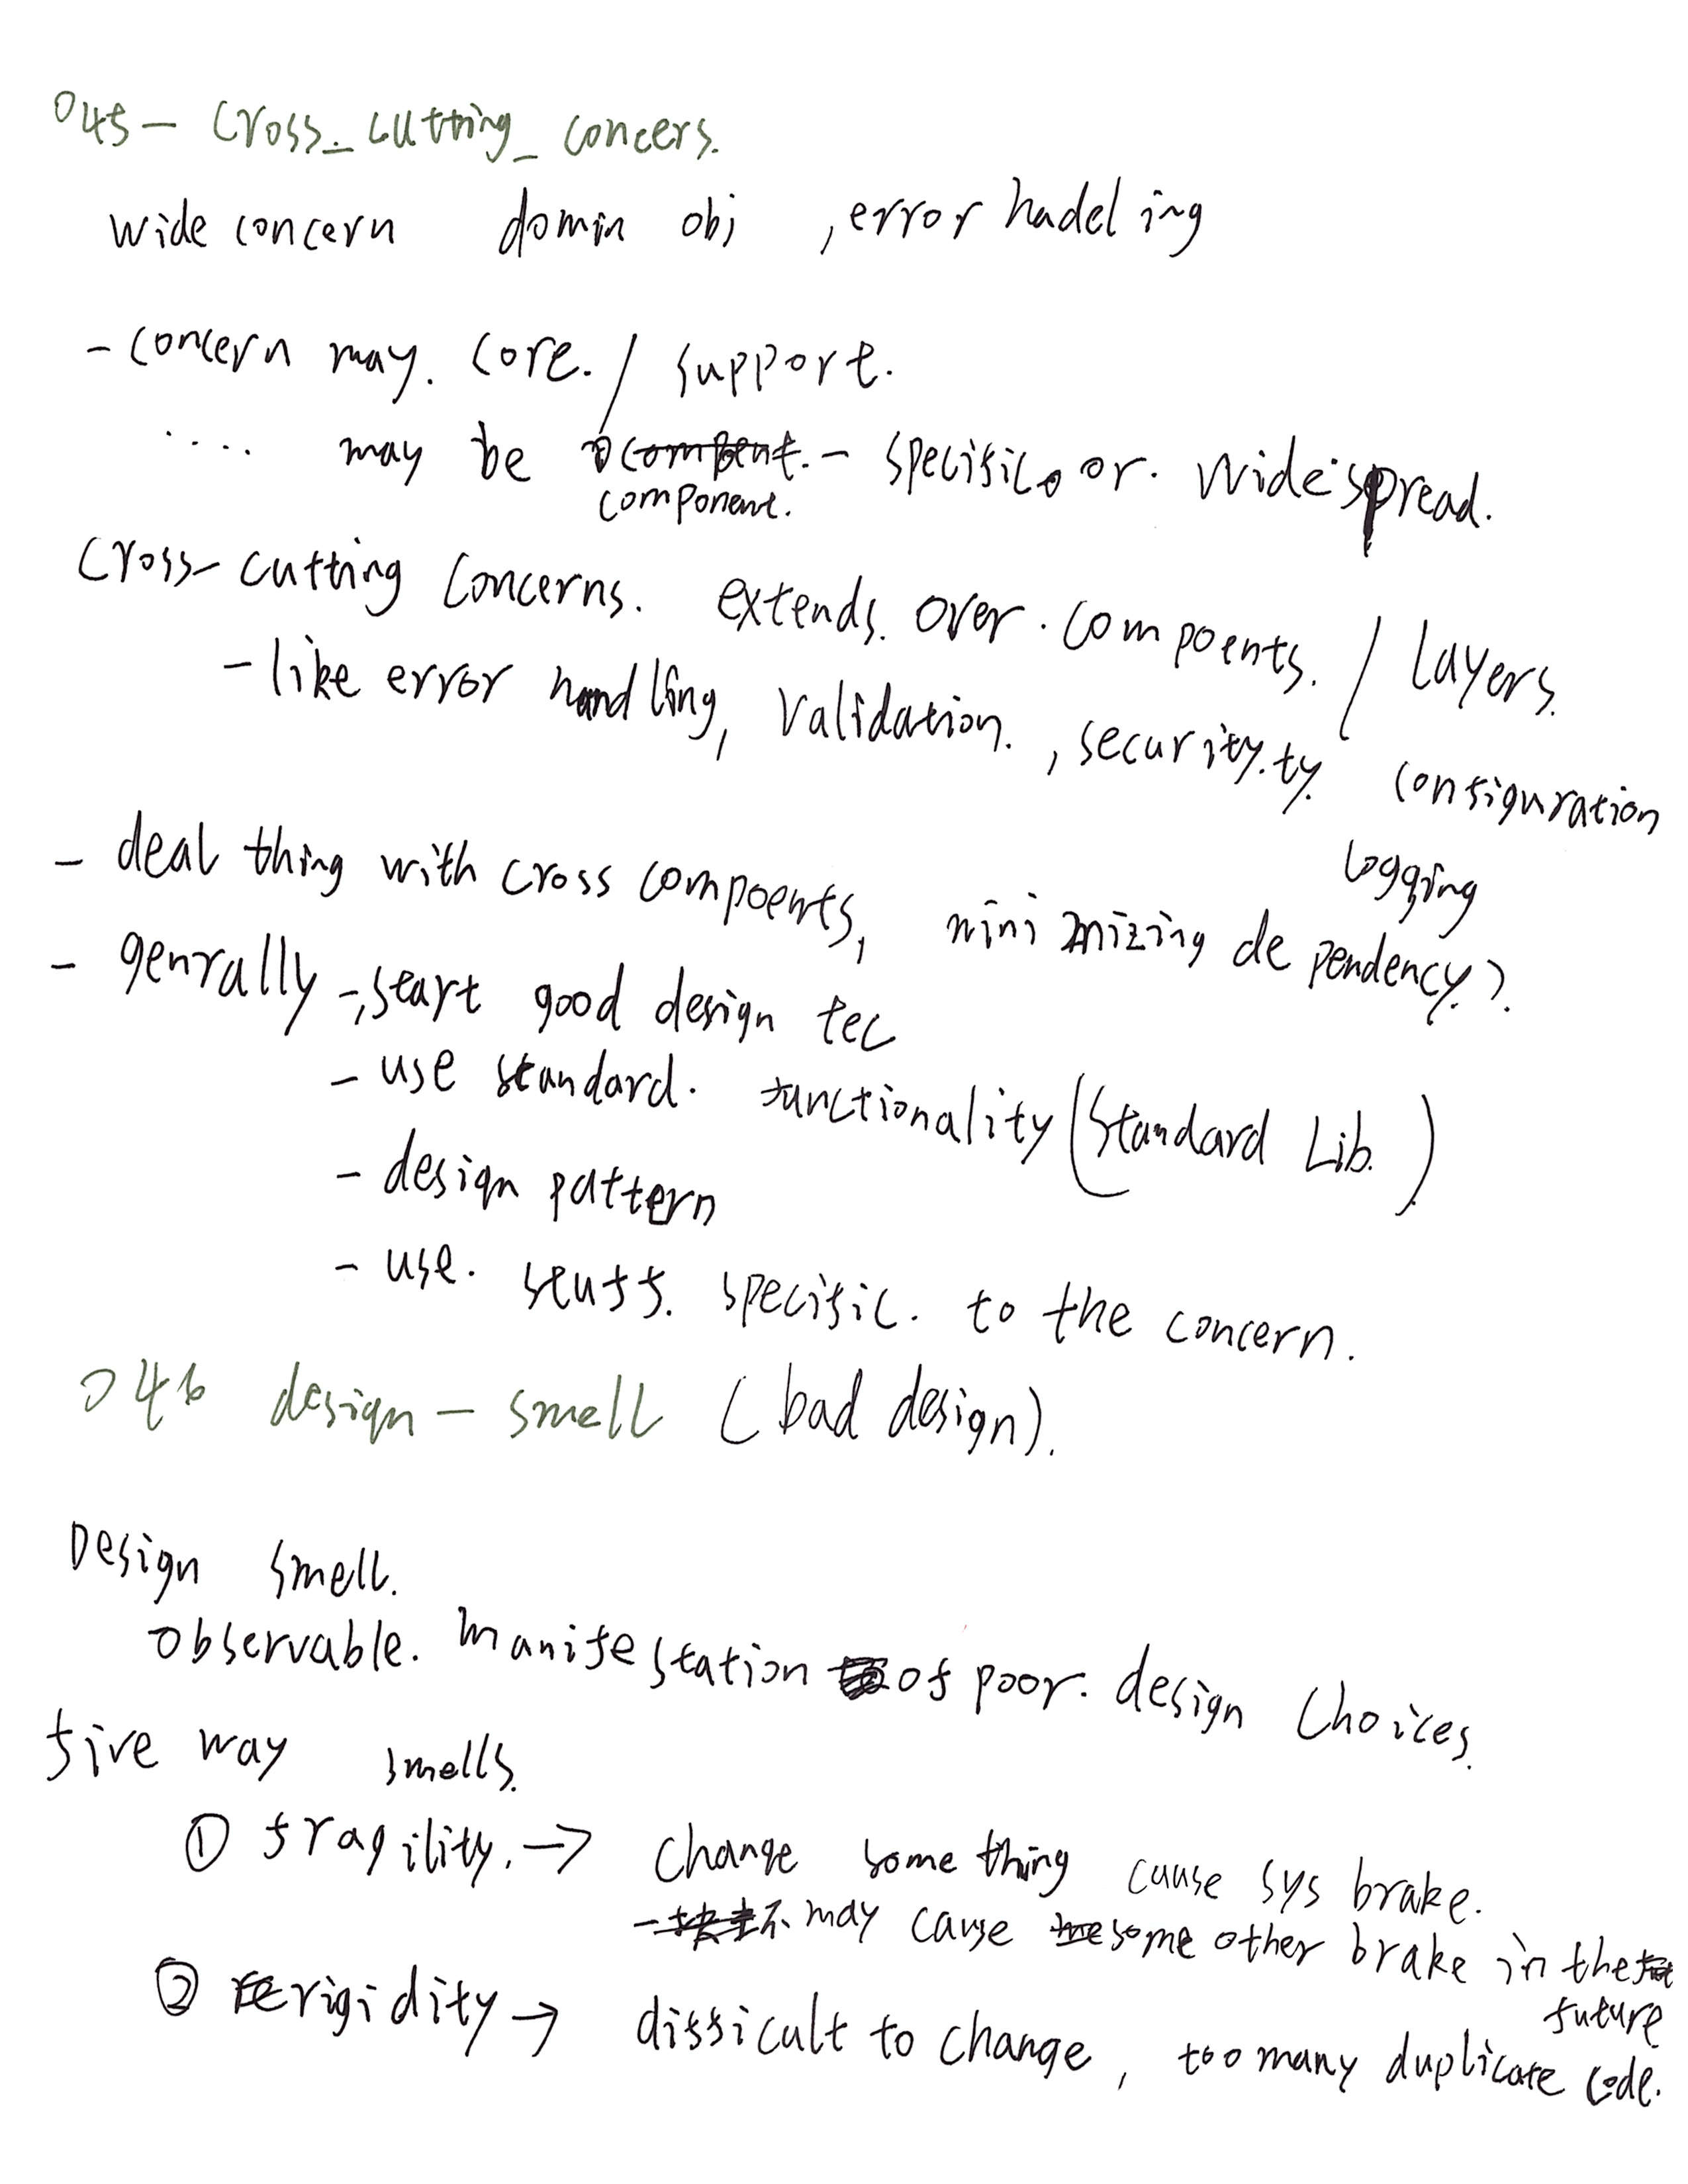 045 - Cross_cutting_concers.
wide concern domin obj , error hadeling
- concern may. core. / support.
.... may be component. - specific. or. widespread.
Cross-cutting concerns. extends. over. compoents. / Layers.
- like error handling, Validation. , security.ty. configuration
logging
- deal thing with cross compoents, minimizing dependency?.
- genrally -, start good design tec
- use standard. functionality (Standard Lib. )
- design pattern
- use. stuff. specific. to the concern.
046 design - smell (bad design).
Design smell.
observable. manifestation of poor. design choices.
five way smells.
① fragility. → change something cause sys brake.
- may cause some other brake in the
future
② rigidity → difficult to change, too many duplicate code.